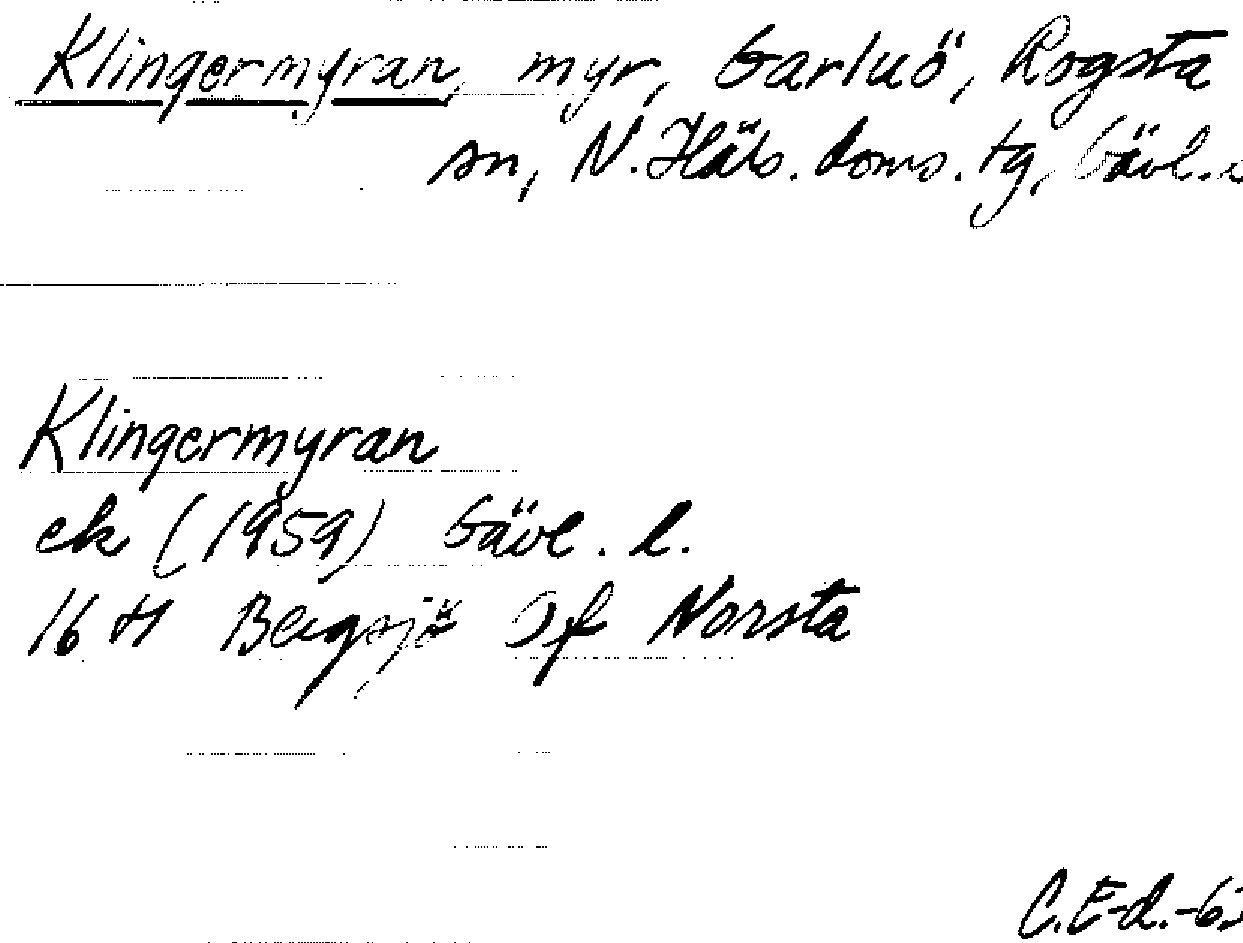 Klingermyran, myr, Garluö, Rogsta
sn, N. Häls. doms. tg, Gävl.
Klingermyran
ek (1959) Gävl. l.
16 H Bergsjö Norsta
C.E-d.-6